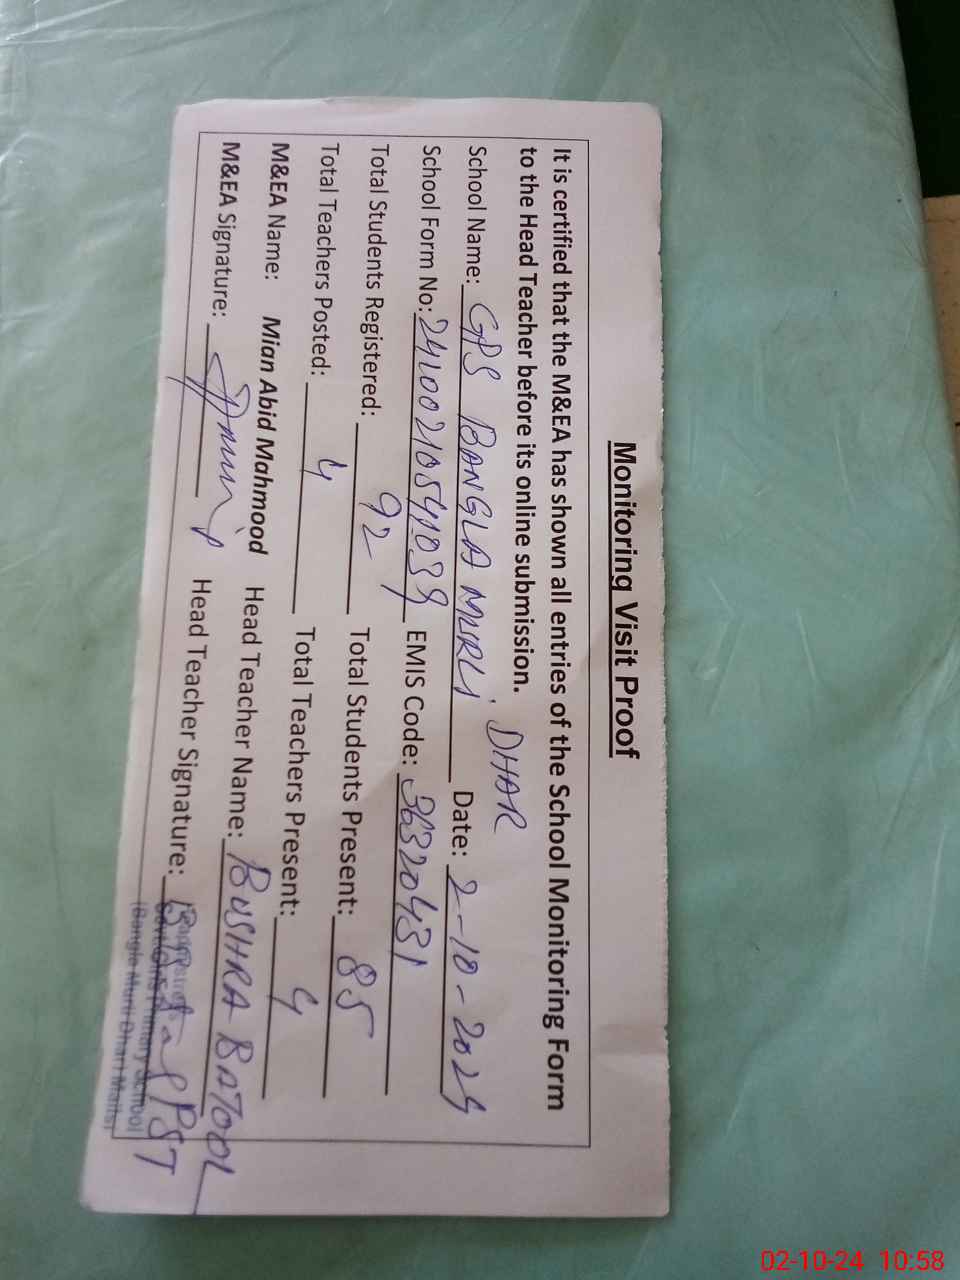 Monitoring Visit Proof
It is certified that the M&EA has shown all entries of the School Monitoring Form
to the Head Teacher before its online submission.
School Name: GPS BANGLA MURLI, DHAR Date: 2-10-2024
School Form No: 24100210541039 EMIS Code: 36320431
Total Students Registered: 92 Total Students Present: 85
Total Teachers Posted: 4 Total Teachers Present: 4
M&EA Name: Mian Abid Mahmood Head Teacher Name: BUSHRA BATOOL
M&EA Signature: Head Teacher Signature: PST
Primary School
(Bangla Murli Dhari Mailsi
02-10-24 10:58